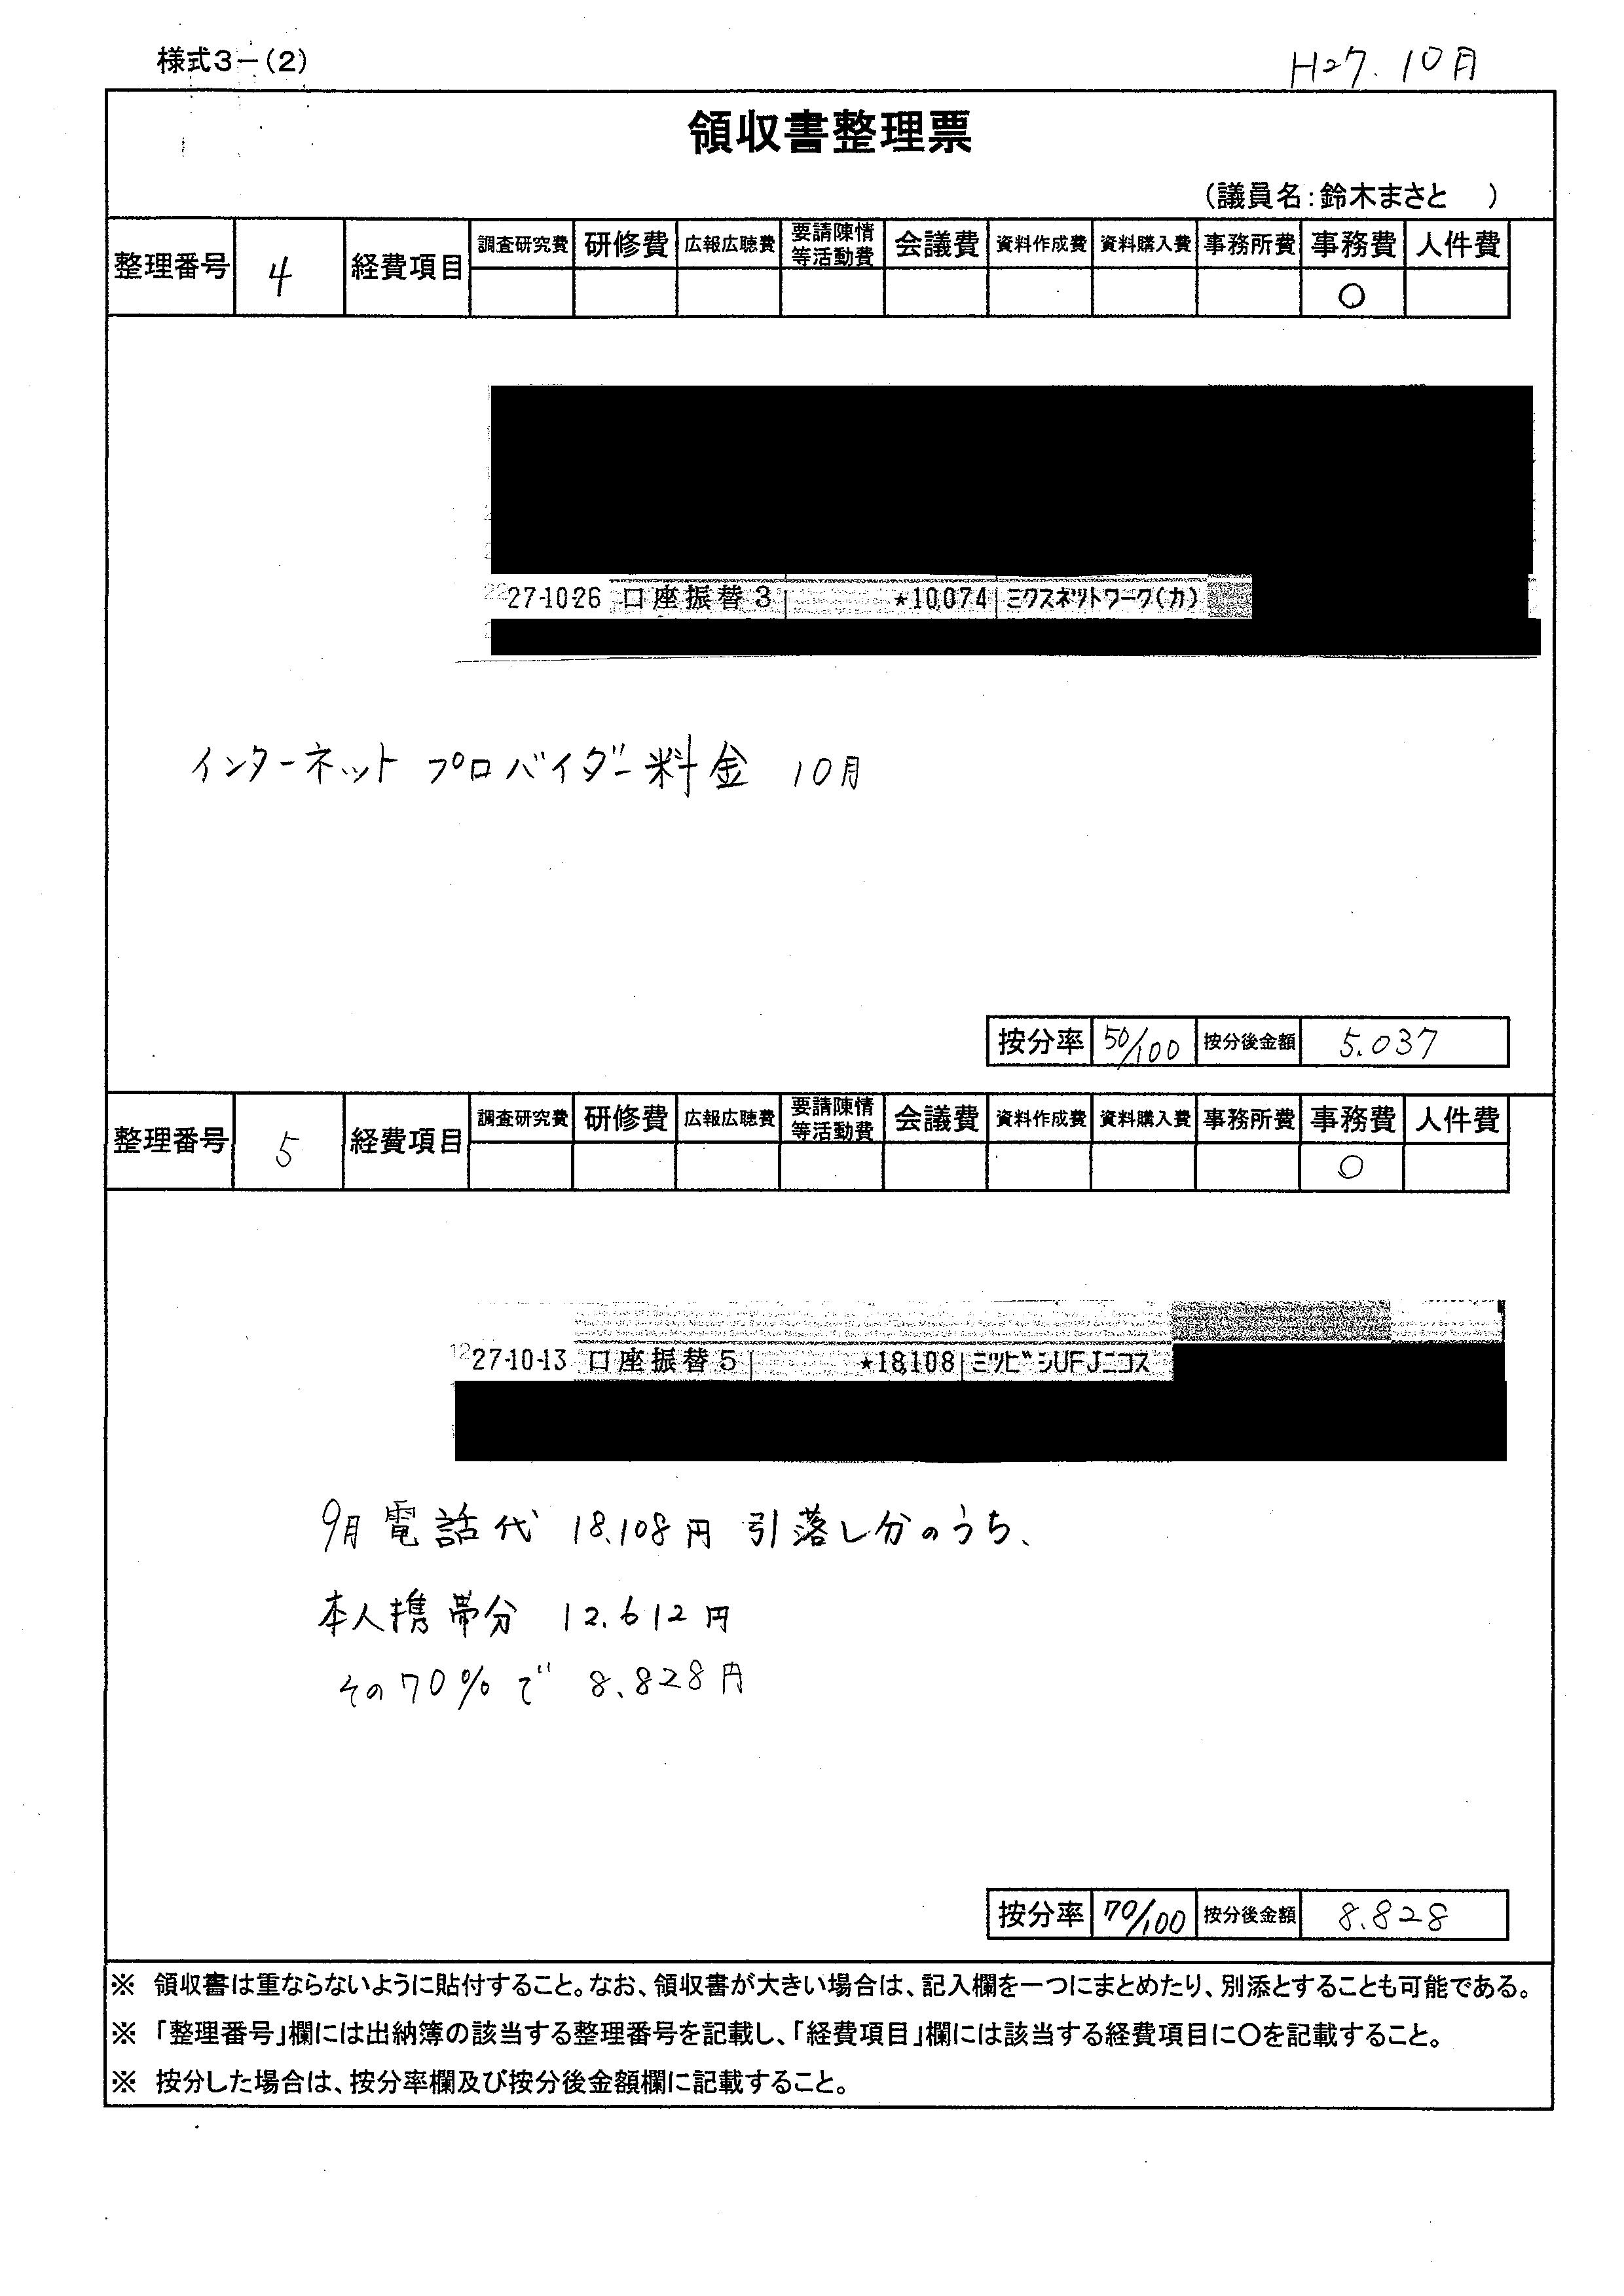 様式3－(2)
H27.10月
領収書整理票
(議員名:鈴木まさと　)
整理番号 4 経費項目 調査研究費 研修費 広報広聴費 要請陳情等活動費 会議費 資料作成費 資料購入費 事務所費 事務費 人件費
○
27-10-26 口座振替3 ★10,074 ミクスネットワーク(カ)
インターネット プロバイダー料金 10月
按分率 50/100 按分後金額 5.037
整理番号 5 経費項目 調査研究費 研修費 広報広聴費 要請陳情等活動費 会議費 資料作成費 資料購入費 事務所費 事務費 人件費
○
12 27-10-13 口座振替5 ★18,108 ミツビシUFJニコス
9月電話代 18.108円 引落し分のうち、
本人携帯分 12.612円
その70%で 8.828円
按分率 70/100 按分後金額 8.828
※ 領収書は重ならないように貼付すること。なお、領収書が大きい場合は、記入欄を一つにまとめたり、別添とすることも可能である。
※ 「整理番号」欄には出納簿の該当する整理番号を記載し、「経費項目」欄には該当する経費項目に○を記載すること。
※ 按分した場合は、按分率欄及び按分後金額欄に記載すること。